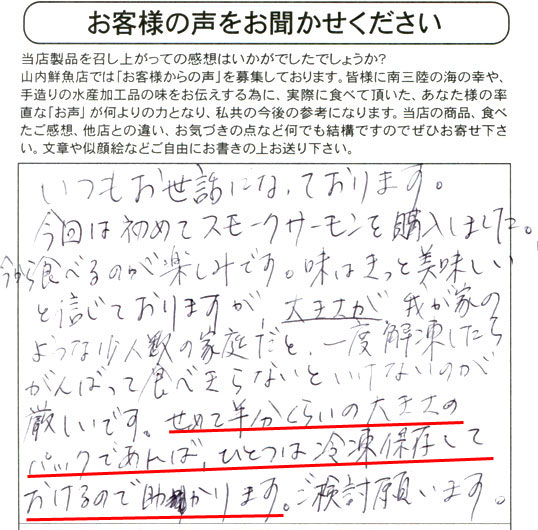 お客様の声をお聞かせください
当店製品を召し上がっての感想はいかがでしたでしょうか?
山内鮮魚店では「お客様からの声」を募集しております。皆様に南三陸の海の幸や、
手造りの水産加工品の味をお伝えする為に、実際に食べて頂いた、あなた様の率
直な「お声」が何よりの力となり、私共の今後の参考になります。当店の商品、食べ
たご感想、他店との違い、お気づきの点など何でも結構ですのでぜひお寄せ下さ
い。文章や似顔絵などご自由にお書きの上お送り下さい。
いつもお世話になっております。
今回は初めてスモークサーモンを購入しました。
今から食べるのが楽しみです。味はきっと美味しい
と信じておりますが、大きさが、我が家の
ような少人数の家庭だと、一度解凍したら
がんばって食べきらないといけないのが
厳しいです。せめて半分くらいの大きさの
パックであれば、ひとつは冷凍保存して
おけるので助かります。ご検討願います。